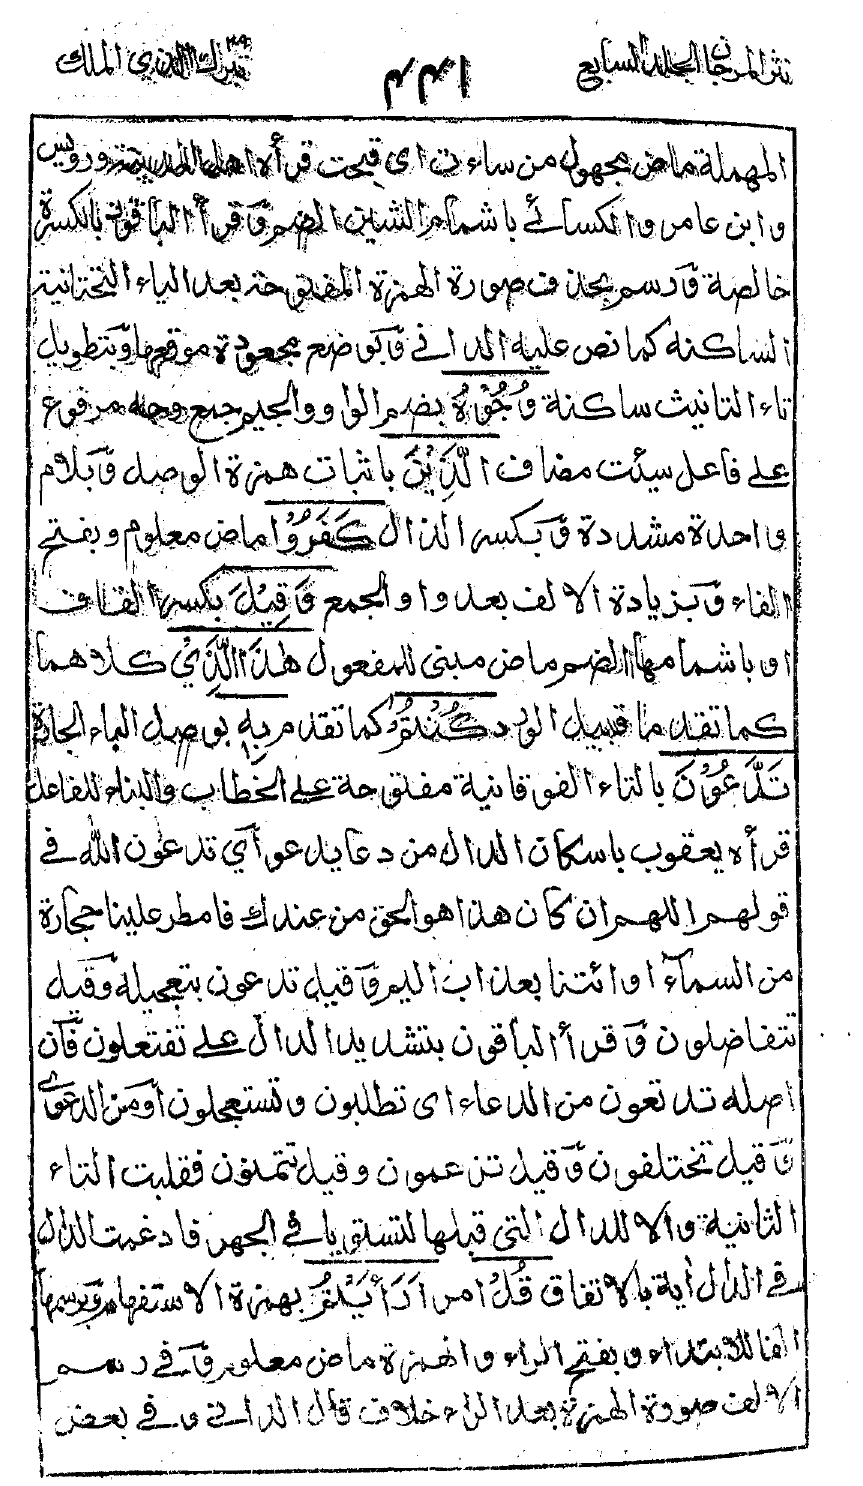 نثر المرجان الجلد السابع
۴۴۱
۲۹ تبرك الذي الملك
المهملة ماض مجهول من ساءت اى قبحت قرأه اهل المدينة ورويس
وابن عامر والكسائے باشمام الشين الضم وقرأ الباقون بالكسرة
خالصة ورسم بحذف صورة الهمزة المفتوحة بعد الياء التحتانية
الساكنه كما نص عليه الدانے وبوضع مجعودة موقعها وبتطويل
تاء التانيث ساكنة وُجُوْهُ بضم الواو والجيم جمع وجه مرفوع
علے فاعل سيئت مضاف الَّذِيْنَ باثبات همزة الوصل وبلام
واحدة مشددة وبكسر الذال كَفَرُوْا ماض معلوم وبفتح
الفاء وبزيادة الالف بعد واو الجمع وَقِيْلَ بكسر القاف
او باشمامها الضم ماض مبنى للمفعول هٰذَا الَّذِيْ كلاهما
كما تقدم ما قبيل الورد كُنْتُمْ كما تقدم بِهٖ بوصل الباء الجارة
تَدَّعُوْنَ بالتاء الفوقانية مفتوحة علے الخطاب والبناء للفاعل
قرأه يعقوب باسكان الدال من دعا يدعو أي تدعون الله فے
قولهم اللهم ان كان هذا هو الحق من عندك فامطر علينا حجارة
من السمآء او ائتنا بعذاب اليم وقيل تدعون بتعجيله وقيل
تتفاضلون وقرأ الباقون بتشديد الدال علے تفتعلون وٓان
اصله تدتعون من الدعاء اى تطلبون وتستعجلون أو من الدعوىٰ
وقيل تختلفون وقيل تزعمون وقيل تتمنون فقلبت التاء
الثانية والا للدال التي قبلها لتستويا فے الجهر فادغمت الدال
فے الدال أية بالاتفاق قُلْ امر اَرَأَيْتُمْ بهمزة الاستفهام وبرسمها
الفا للابتداء وبفتح الراء والهمزة ماض معلوم وٓ فے رسم
الالف صورة الهمزة بعد الراء خلاف قال الدانے وفے بعض